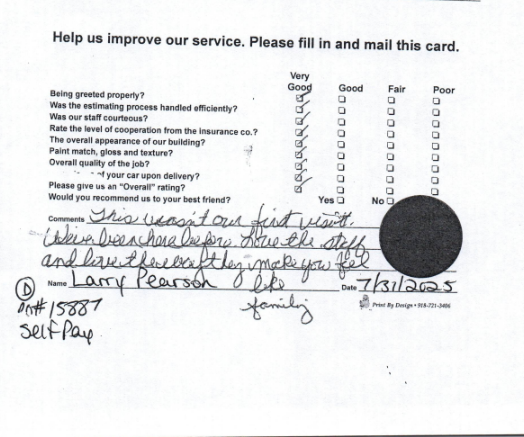 Help us improve our service. Please fill in and mail this card.
Very
Good Good Fair Poor
Being greeted properly?
Was the estimating process handled efficiently?
Was our staff courteous?
Rate the level of cooperation from the insurance co.?
The overall appearance of our building?
Paint match, gloss and texture?
Overall quality of the job?
of your car upon delivery?
Please give us an "Overall" rating?
Would you recommend us to your best friend? Yes No
Comments This wasn't our first visit.
We've been here before. Love the staff
and love the way they make you feel
like
family
Name Larry Pearson Date 7/31/2025
Print By Design • 918-721-3406
D
15887
Self Pay